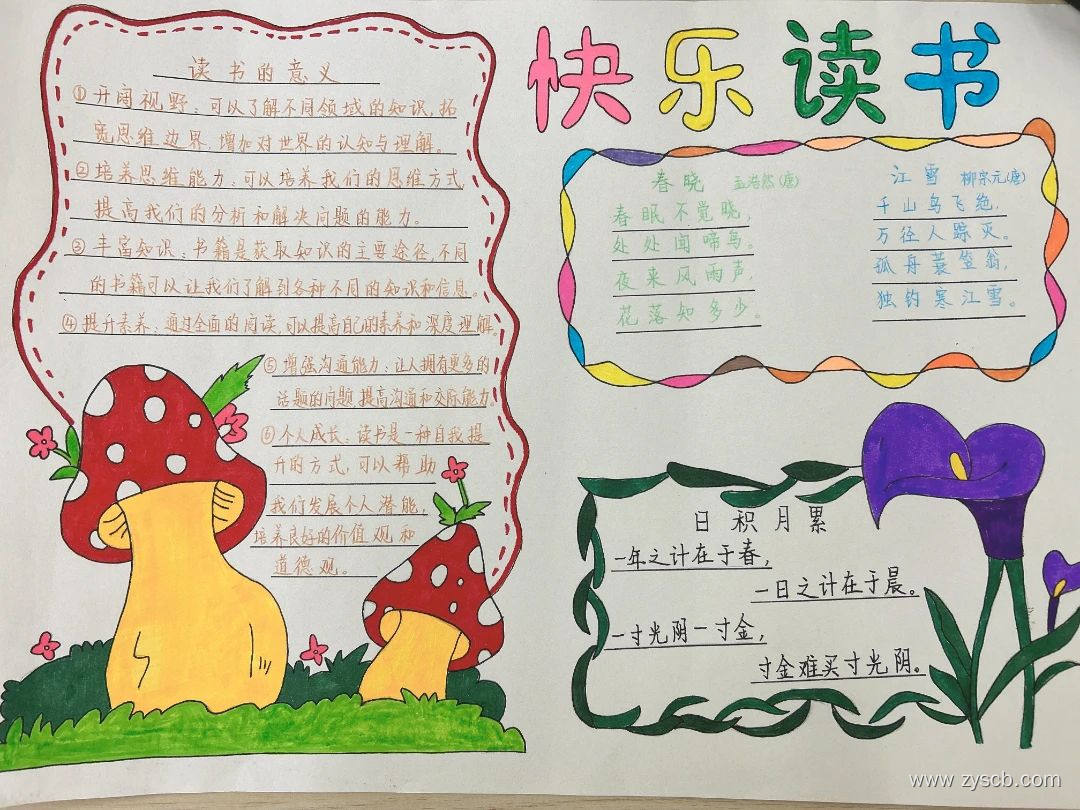 快乐读书
读书的意义
①开阔视野：可以了解不同领域的知识，拓
宽思维边界，增加对世界的认知与理解。
②培养思维能力：可以培养我们的思维方式，
提高我们的分析和解决问题的能力。
③丰富知识：书籍是获取知识的主要途径，不同
的书籍可以让我们了解到各种不同的知识和信息。
④提升素养：通过全面的阅读，可以提高自己的素养和深度理解。
⑤增强沟通能力：让人拥有更多的
话题的问题，提高沟通和交际能力。
⑥个人成长：读书是一种自我提
升的方式，可以帮助
我们发展个人潜能，
培养良好的价值观和
道德观。
春晓 孟浩然(唐)
春眠不觉晓，
处处闻啼鸟。
夜来风雨声，
花落知多少。
江雪 柳宗元(唐)
千山鸟飞绝，
万径人踪灭。
孤舟蓑笠翁，
独钓寒江雪。
日积月累
一年之计在于春，
一日之计在于晨。
一寸光阴一寸金，
寸金难买寸光阴。
www.zyscb.com